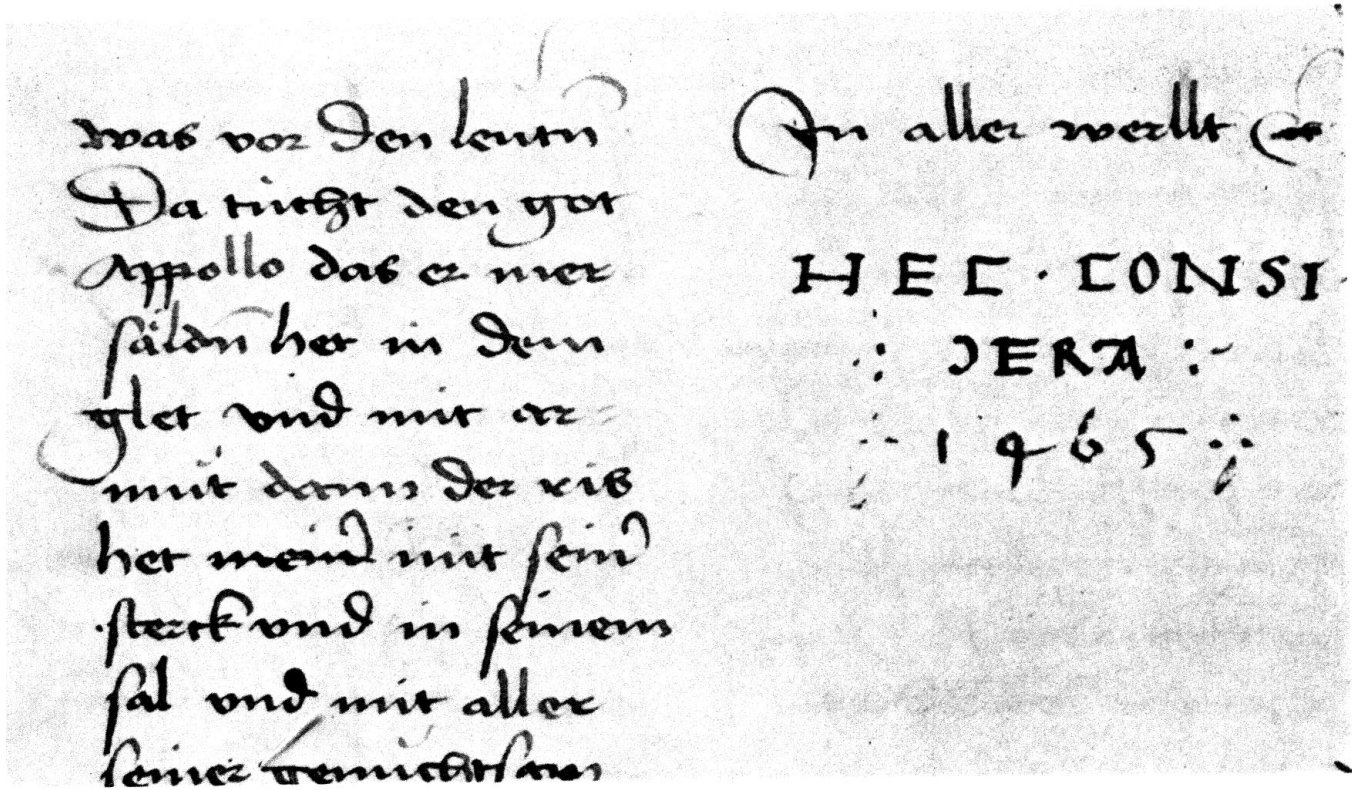 was vor den leutn̄
Da tücht den got
Appollo das er mer
säldn̄ het in dem
glet vnd mit ar=
mut dann der ris
het mit sein̄
sterck vnd in seinem
sal vnd mit aller
seiner genuchtsam
In aller werllt
HEC · CONSI
DERA
1465